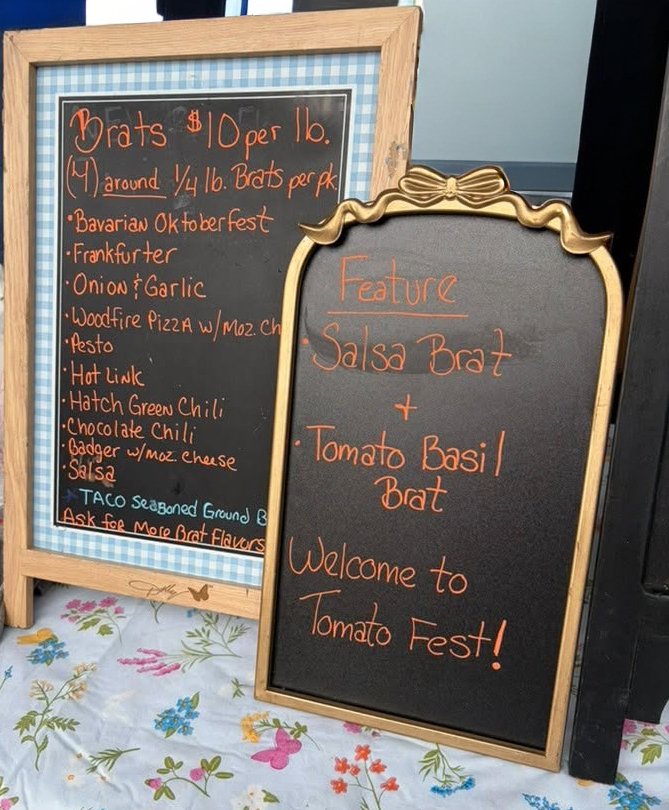 Brats $10 per lb.
(4) around 1/4 lb. Brats per pk
• Bavarian Oktoberfest
• Frankfurter
• Onion & Garlic
• Woodfire Pizza w/Moz. Ch
• Pesto
• Hot Link
• Hatch Green Chili
• Chocolate Chili
• Badger w/moz. cheese
• Salsa
* TACO Seasoned Ground B
Ask for More Brat Flavors
Feature
• Salsa Brat
+
• Tomato Basil
Brat
Welcome to
Tomato Fest!